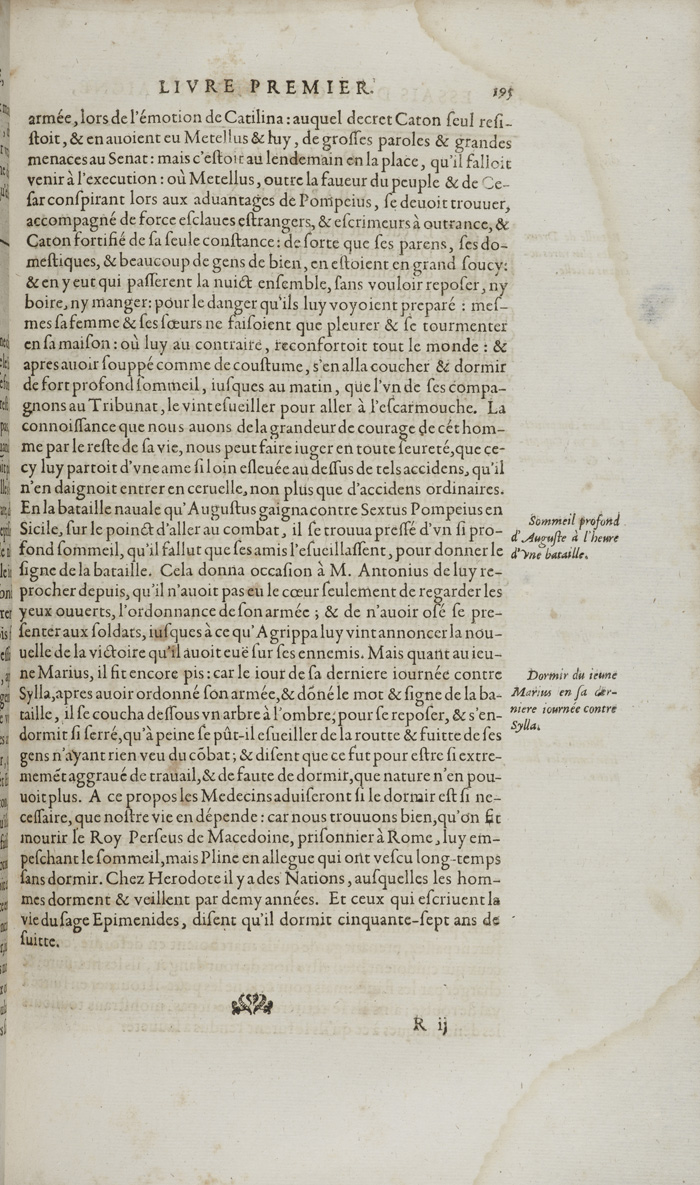 LIVRE PREMIER. 195
armée, lors de l'émotion de Catilina : auquel decret Caton ſeul reſi-
ſtoit, & en auoient eu Metellus & luy, de groſſes paroles & grandes
menaces au Senat : mais c'eſtoit au lendemain en la place, qu'il falloit
venir à l'execution : où Metellus, outre la faueur du peuple & de Ce-
ſar conſpirant lors aux aduantages de Pompeius, ſe deuoit trouuer,
accompagné de force eſclaues eſtrangers, & eſcrimeurs à outrance, &
Caton fortifié de ſa ſeule conſtance : de ſorte que ſes parens, ſes do-
meſtiques, & beaucoup de gens de bien, en eſtoient en grand ſoucy:
& en y eut qui paſſerent la nuict enſemble, ſans vouloir repoſer, ny
boire, ny manger: pour le danger qu'ils luy voyoient preparé : meſ-
mes ſa femme & ſes ſœurs ne faiſoient que pleurer & ſe tourmenter
en ſa maiſon : où luy au contraire, reconfortoit tout le monde : &
apres auoir ſouppé comme de couſtume, s'en alla coucher & dormir
de fort profond ſommeil, iuſques au matin, que l'vn de ſes compa-
gnons au Tribunat, le vint eſueiller pour aller à l'eſcarmouche. La
connoiſſance que nous auons de la grandeur de courage de cét hom-
me par le reſte de ſa vie, nous peut faire iuger en toute ſeureté, que ce-
cy luy partoit d'vne ame ſi loin eſleuée au deſſus de tels accidens, qu'il
n'en daignoit entrer en ceruelle, non plus que d'accidens ordinaires.
En la bataille nauale qu'Auguſtus gaigna contre Sextus Pompeius en
Sicile, ſur le poinct d'aller au combat, il ſe trouua preſſé d'vn ſi pro-
fond ſommeil, qu'il fallut que ſes amis l'eſueillaſſent, pour donner le
ſigne de la bataille. Cela donna occaſion à M. Antonius de luy re-
procher depuis, qu'il n'auoit pas eu le cœur ſeulement de regarder les
yeux ouuerts, l'ordonnance de ſon armée ; & de n'auoir oſé ſe pre-
ſenter aux ſoldats, iuſques à ce qu'Agrippa luy vint annoncer la nou-
uelle de la victoire qu'il auoit euë ſur ſes ennemis. Mais quant au ieu-
ne Marius, il fit encore pis : car le iour de ſa derniere iournée contre
Sylla, apres auoir ordonné ſon armée, & dōné le mot & ſigne de la ba-
taille, il ſe coucha deſſous vn arbre à l'ombre, pour ſe repoſer, & s'en-
dormit ſi ſerré, qu'à peine ſe pût-il eſueiller de la routte & fuitte de ſes
gens n'ayant rien veu du cōbat ; & diſent que ce fut pour eſtre ſi extre-
memēt aggraué de trauail, & de faute de dormir, que nature n'en pou-
uoit plus. A ce propos les Medecins aduiſeront ſi le dormir eſt ſi ne-
ceſſaire, que noſtre vie en dépende : car nous trouuons bien, qu'on fit
mourir le Roy Perſeus de Macedoine, priſonnier à Rome, luy em-
peſchant le ſommeil, mais Pline en allegue qui ont veſcu long-temps
ſans dormir. Chez Herodote il y a des Nations, auſquelles les hom-
mes dorment & veillent par demy années. Et ceux qui eſcriuent la
vie du ſage Epimenides, diſent qu'il dormit cinquante-ſept ans de
ſuitte.
Sommeil profond
d'Auguſte à l'heure
d'vne bataille.
Dormir du ieune
Marius en ſa der-
niere iournée contre
Sylla.
R ij